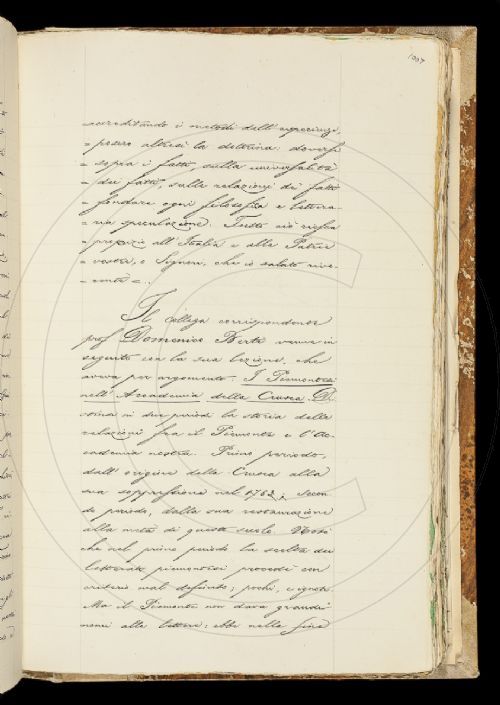 1007
=accreditando i metodi dell'esperienza,
=posero altresì la dottrina: doversi
= sopra i fatti, sulla universalità
= dei fatti, sulle relazioni dei fatti
= fondare ogni filosofia e lettera-
=ria speculazione. Tutto ciò
= all'Italia e alla Patria
= vostra, o Signori, che io saluto rive-
=rente =.
Il collega corrispondente
prof. Domenico Berti venne in
seguito con la sua lezione, che
aveva per argomento: I Piemontesi
nell'Accademia della Crusca. Di-
in due periodi la storia delle
relazioni fra il Piemonte e l'Ac-
cademia nostra. Primo periodo,
dall'origine della Crusca alla
sua soppressione nel 1783; secon-
do periodo, dalla sua restaurazione
alla metà di questo secolo. Notò
che nel primo periodo la scelta dei
letterati piemontesi procedé con
criterio mal definito; pochi, e ignoti.
Ma il Piemonte non dava grandi
nomi alle lettere: ebbe nella fine